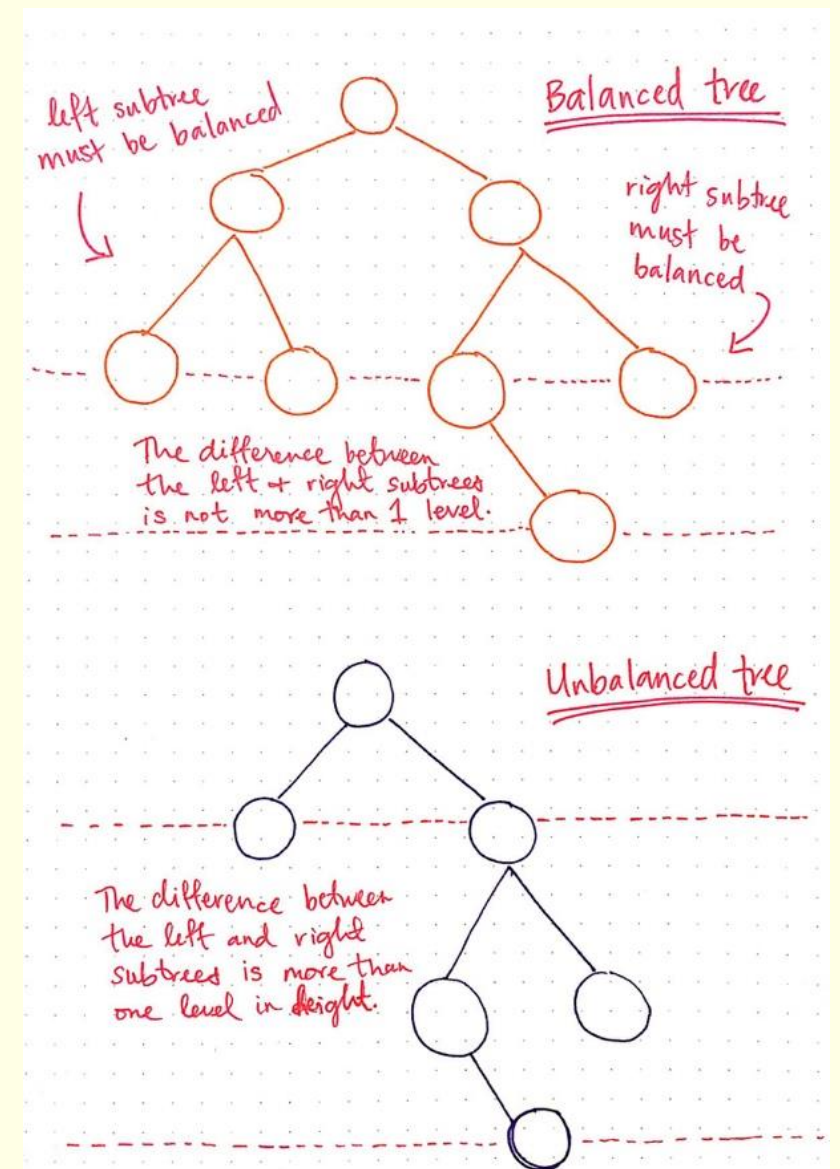 left subtree
must be balanced
Balanced tree
right subtree
must be
balanced
The difference between
the left + right subtrees
is not more than 1 level.
Unbalanced tree
The difference between
the left and right
subtrees is more than
one level in height.